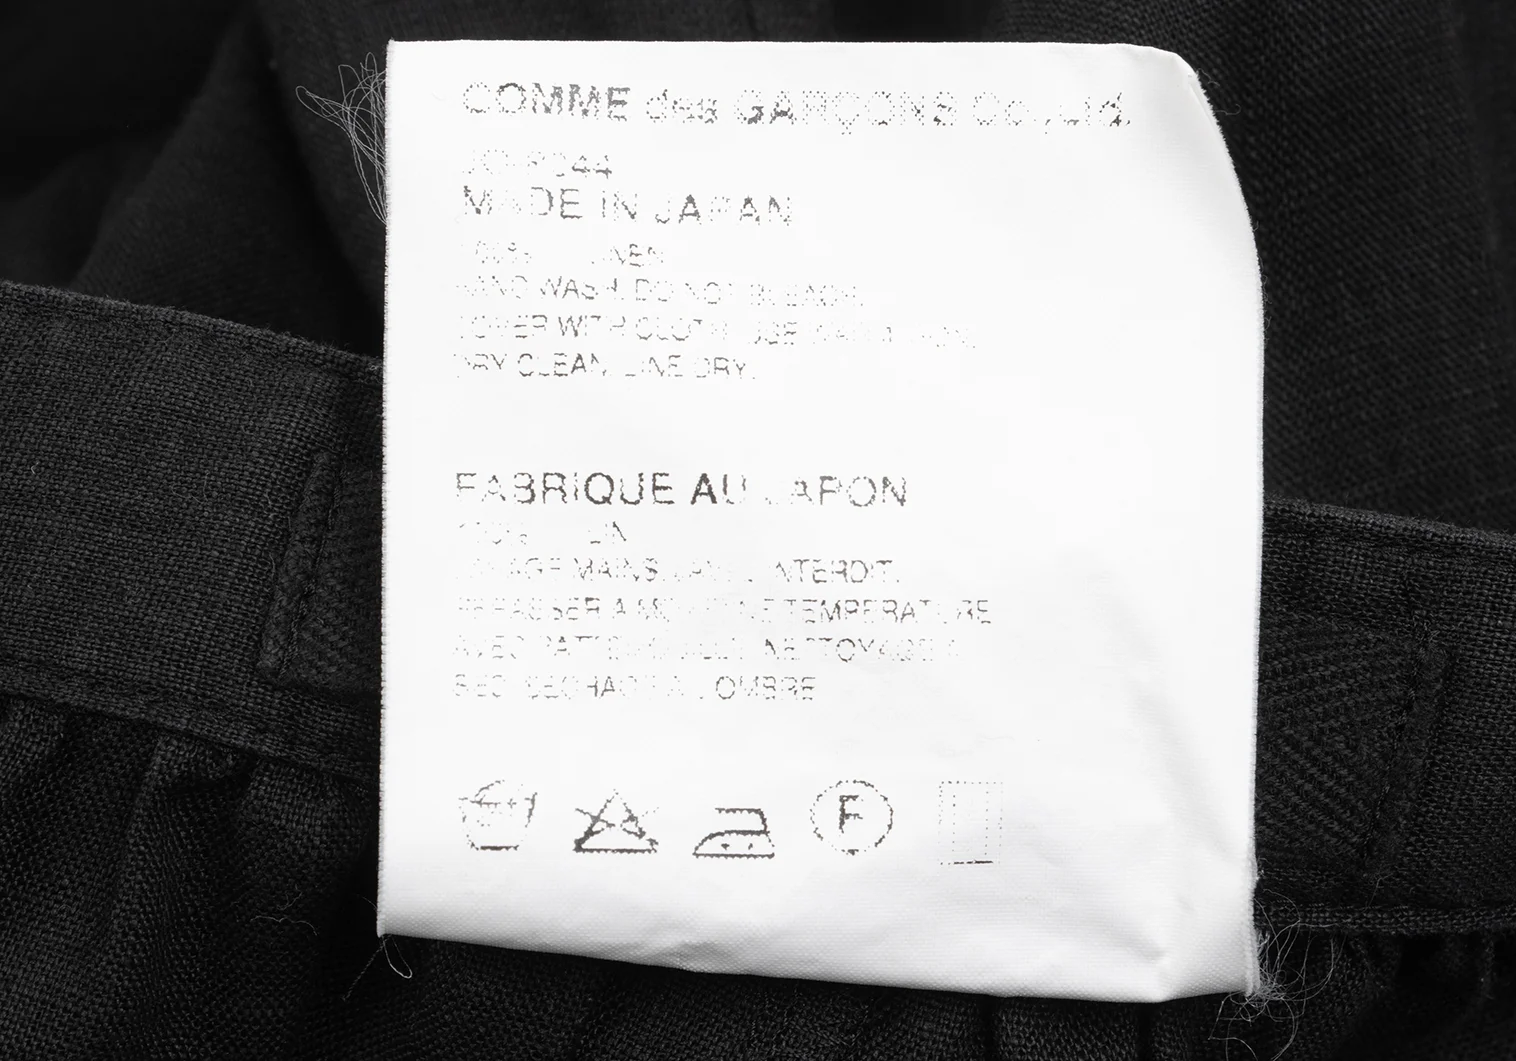 COMME des GARÇONS Co.,Ltd.
MADE IN JAPAN
100% LINEN
HAND WASH. DO NOT BLEACH.
COVER WITH CLOTH. USE
DRY CLEAN. LINE DRY.
FABRIQUE AU JAPON
100% LIN
LAVAGE MAINS. INTERDIT.
REPASSER A TEMPERATURE
AVEC NETTOYAGE A
SEC. SECHAGE A L'OMBRE
F